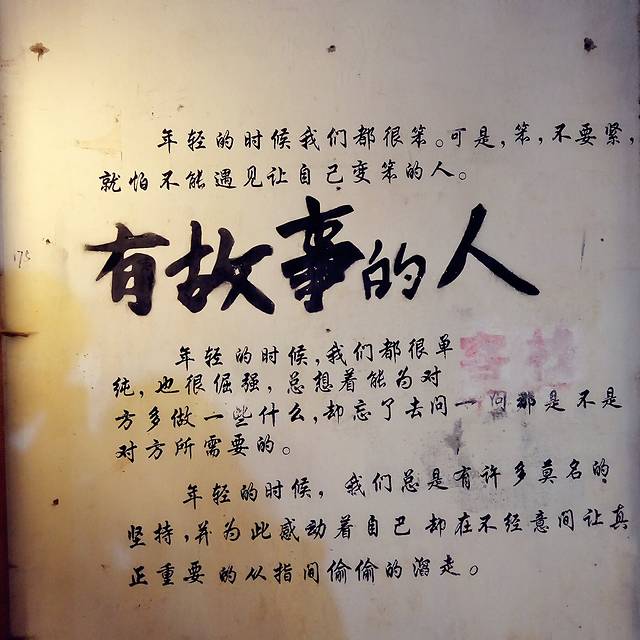 年轻的时候我们都很笨。可是,笨,不要紧,
就怕不能遇见让自己变笨的人。
有故事的人
年轻的时候,我们都很单
纯,也很倔强,总想着能为对
方多做一些什么,却忘了去问一问那是不是
对方所需要的。
年轻的时候,我们总是有许多莫名的
坚持,并为此感动着自己却在不经意间让真
正重要的从指间偷偷的溜走。